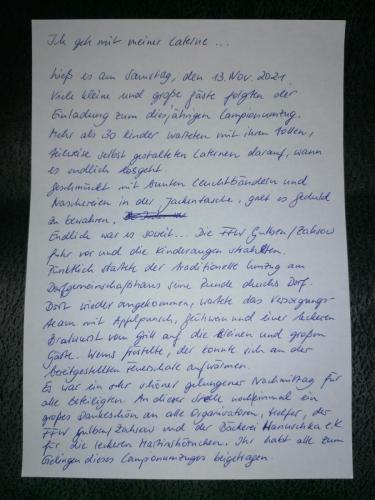 Ich geh mit meiner Laterne ...
hieß es am Samstag, den 13. Nov. 2021.
Viele kleine und große Gäste folgten der
Einladung zum diesjährigen Lampionumzug.
Mehr als 30 Kinder warteten mit ihren tollen,
teilweise selbst gestalteten Laternen darauf, wann
es endlich losgeht.
Geschmückt mit bunten Leuchtbändern und
Naschereien in der Jackentasche, galt es Geduld
zu bewahren.
Endlich war es soweit... Die FFW Gulben/Zahsow
fuhr vor und die Kinderaugen strahlten.
Pünktlich startete der traditionelle Umzug am
Dorfgemeinschaftshaus seine Runde durchs Dorf.
Dort wieder angekommen, wartete das Versorgungs-
team mit Apfelpunsch, Glühwein und einer leckeren
Bratwurst vom Grill auf die kleinen und großen
Gäste. Wems fröstelte, der konnte sich an der
bereitgestellten Feuerschale aufwärmen.
Es war ein sehr schöner gelungener Nachmittag für
alle Beteiligten. An dieser Stelle nocheinmal ein
großes Dankeschön an alle Organisatoren, Helfer, der
FFW Gulben/Zahsow und der Bäckerei
für die leckeren Martinshörnchen. Ihr habt alle zum
Gelingen dieses Lampionumzuges beigetragen.